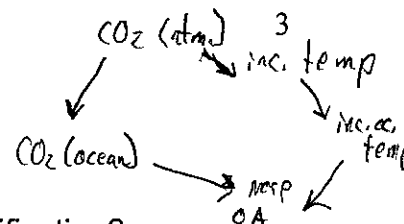 CO₂ (atm.) 3
inc. temp
inc. oc.
temp
CO₂ (ocean)
OA